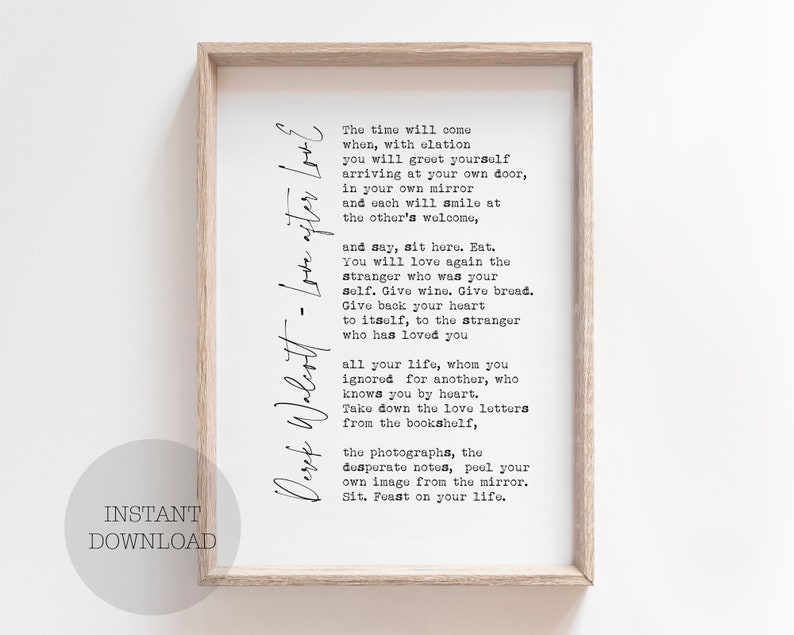 Derek Walcott - Love after LovE
The time will come
when, with elation
you will greet yourself
arriving at your own door,
in your own mirror
and each will smile at
the other's welcome,
and say, sit here. Eat.
You will love again the
stranger who was your
self. Give wine. Give bread.
Give back your heart
to itself, to the stranger
who has loved you
all your life, whom you
ignored  for another, who
knows you by heart.
Take down the love letters
from the bookshelf,
the photographs, the
desperate notes,  peel your
own image from the mirror.
Sit. Feast on your life.
INSTANT
DOWNLOAD